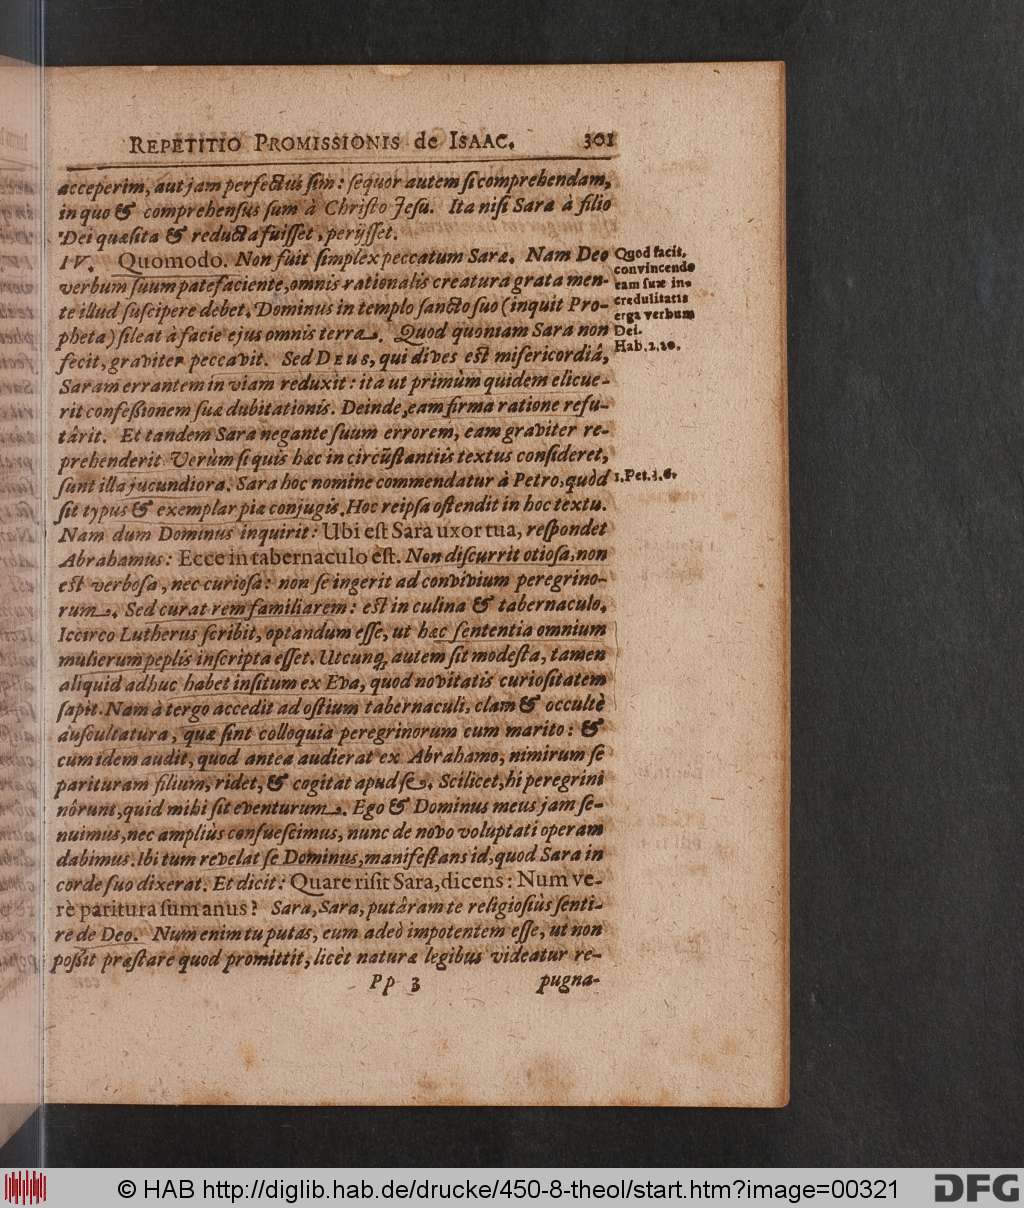 REPETITIO PROMISSIONIS de ISAAC. 301
acceperim, aut jam perfectus sim: sequor autem si comprehendam,
in quo & comprehensus sum à Christo Jesu. Ita nisi Sara à filio
Dei quæsita & reducta fuisset, perijsset.
IV. Quomodo. Non fuit simplex peccatum Saræ. Nam Deo
verbum suum patefaciente, omnis rationalis creatura grata men-
te illud suscipere debet. Dominus in templo sancto suo (inquit Pro-
pheta) sileat à facie ejus omnis terra. Quod quoniam Sara non
fecit, graviter peccavit. Sed DEUS, qui dives est misericordiâ,
Saram errantem in viam reduxit: ita ut primùm quidem elicue-
rit confeßionem suæ dubitationis. Deinde, eam firma ratione refu-
târit. Et tandem Sara negante suum errorem, eam graviter re-
prehenderit. Verùm si quis hæc in circũstantiis textus consideret,
sunt illa jucundiora. Sara hoc nomine commendatur à Petro, quòd
sit typus & exemplar piæ conjugis. Hoc reipsa ostendit in hoc textu.
Nam dum Dominus inquirit: Ubi est Sara uxor tua, respondet
Abrahamus: Ecce in tabernaculo est. Non discurrit otiosa, non
est verbosa, nec curiosa: non se ingerit ad convivium peregrino-
rum. Sed curat rem familiarem: est in culina & tabernaculo.
Iccirco Lutherus scribit, optandum esse, ut hæc sententia omnium
mulierum peplis inscripta esset. Utcunq; autem sit modesta, tamen
aliquid adhuc habet insitum ex Eva, quod novitatis curiositatem
sapit. Nam à tergo accedit ad ostium tabernaculi, clam & occultè
auscultatura, quæ sint colloquia peregrinorum cum marito: &
cum idem audit, quod antea audierat ex Abrahamo, nimirum se
parituram filium, ridet, & cogitat apud se. Scilicet, hi peregrini
nôrunt, quid mihi sit eventurum. Ego & Dominus meus jam se-
nuimus, nec ampliùs consuescimus, nunc de novo voluptati operam
dabimus. Ibi tum revelat se Dominus, manifestans id, quod Sara in
corde suo dixerat. Et dicit: Quare risit Sara, dicens: Num ve-
rè paritura sum anus? Sara, Sara, putâram te religiosiùs senti-
re de Deo. Num enim tu putas, eum adeò impotentem esse, ut non
poßit præstare quod promittit, licèt naturæ legibus videatur re-
Pp 3 pugna-
Quod facit,
convincendo
eam suæ in-
credulitatis
erga verbum
Dei.
Hab. 2. 20.
1. Pet. 3. 6.
© HAB http://diglib.hab.de/drucke/450-8-theol/start.htm?image=00321
DFG